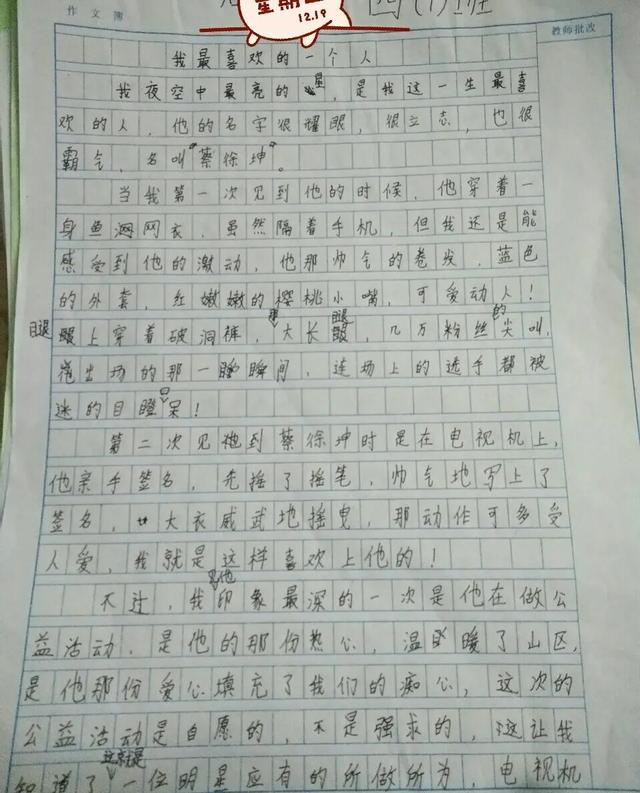 作文簿
星期
12.19
四(1)班
教师批改
我最喜欢的一个人
我夜空中最亮的星,是我这一生最喜
欢的人,他的名字很耀眼,很立志,也很
霸气,名叫“蔡徐坤”。
当我第一次见到他的时候,他穿着一
身鱼网衣,虽然隔着手机,但我还是能
感受到他的激动,他那帅气的卷发,蓝色
的外套,红嫩嫩的樱桃小嘴,可爱动人!
腿上穿着破洞裤,那大长腿,几万粉丝的尖叫,
出场的那一瞬间,连场上的选手都被
迷的目瞪口呆!
第二次见到蔡徐坤时是在电视机上,
他亲手签名,先摇了摇笔,帅气地写上了
签名,大衣威武地摇曳,那动作可多受
人爱,我就是这样喜欢上他的!
不过,我见他印象最深的一次是他在做公
益活动,是他的那份热心,温暖了山区,
是他那份爱心填充了我们的痴心,这次的
公益活动是自愿的,不是强求的,这让我
知道了这就是一位明星应有的所做所为,电视机